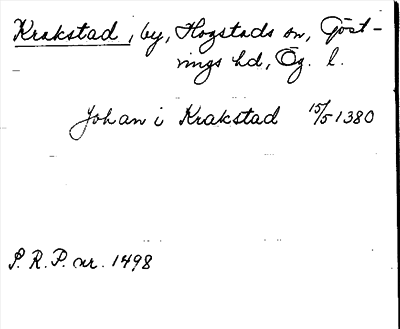 Krakstad, by, Hogstads sn, Göst-
rings hd, Ög. l.
Johan i Krakstad 15/5 1380
S.R.P. nr. 1498